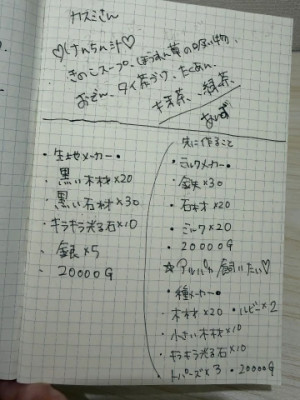 カスミさん
♡けんちん汁♡
きのこスープ、ほうれん草の
おでん、タイ茶づけ、たくあん、
緑茶、
先に作ること
・生地メーカー・
・黒い木材×20
・黒い石材×30
・キラキラ光る石×10
・銀×5
・20000G
・ミルクメーカー・
・鉄×30
・石材×20
・ミルク×20
・20000G
☆アルパカ飼いたい♡
・種メーカー・
・木材×20 ・ルビー×2
・小さい木材×10
・キラキラ光る石×10
・トパーズ×3 ・20000G